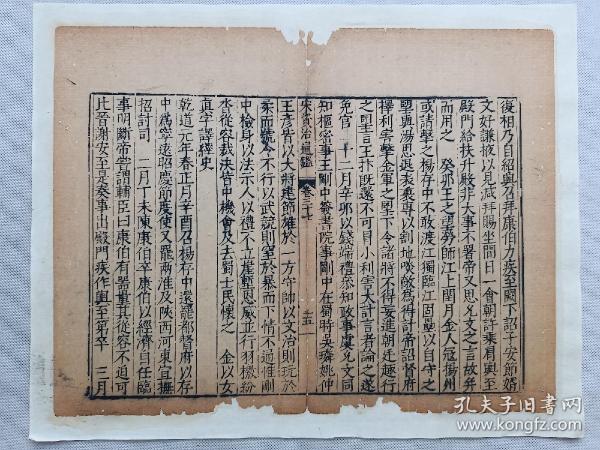 復相乃自紹興召拜康伯力疾至闕下詔子安節婿
文好謙掖以見減拜賜坐間日一會朝許乘肩輿至
殿門給扶升殿非大事不署帝又思允文之言故并
而用之　癸卯王之望勞師江上閏月金人冦揚州
或請擊之楊存中不敢渡江獨臨江固壘以自守之
望與湯思退表裏專以割地啖敵為得計帝詔督府
擇利擊金軍之望下令諸將不得妄進朝廷趣行
之望言王抃既還不可因小利害大計言者論之遂
免官　十二月辛卯以錢端禮參知政事虞允文同
知樞密事王剛中簽書院事剛中在蜀時吳璘姚仲
宋元資治通鑑
卷三十七
十五
王彥皆以大將建節雄於一方守帥以文治則玩於
柔而號令不行以武競則窒於暴而下情不通惟剛
中檢身以法示人以禮不立崖塹恩威並行羽檄紛
沓從容裁決皆中機會及去蜀士民懷之　金以女
真字譯經史
乾道元年春正月辛酉召楊存中還罷都督府以存
中為寧遠昭慶節度使又罷兩淮及陝西河東宣撫
招討司　二月丁未陳康伯卒康伯以經濟自任臨
事明斷帝嘗謂輔臣曰康伯有器量其從容不迫可
比晉謝安至是奏事出殿門疾作輿至第卒　三月
孔夫子旧书网
kongfz.com